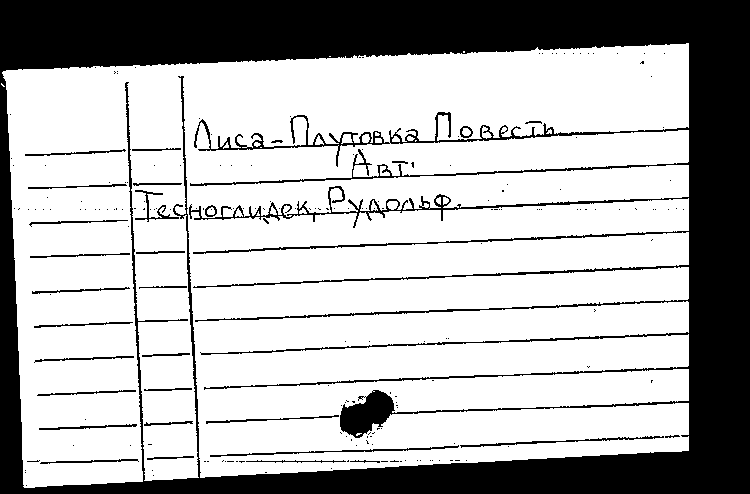 Лиса-Плутовка Повесть
Авт.
Тесноглидек, Рудольф.